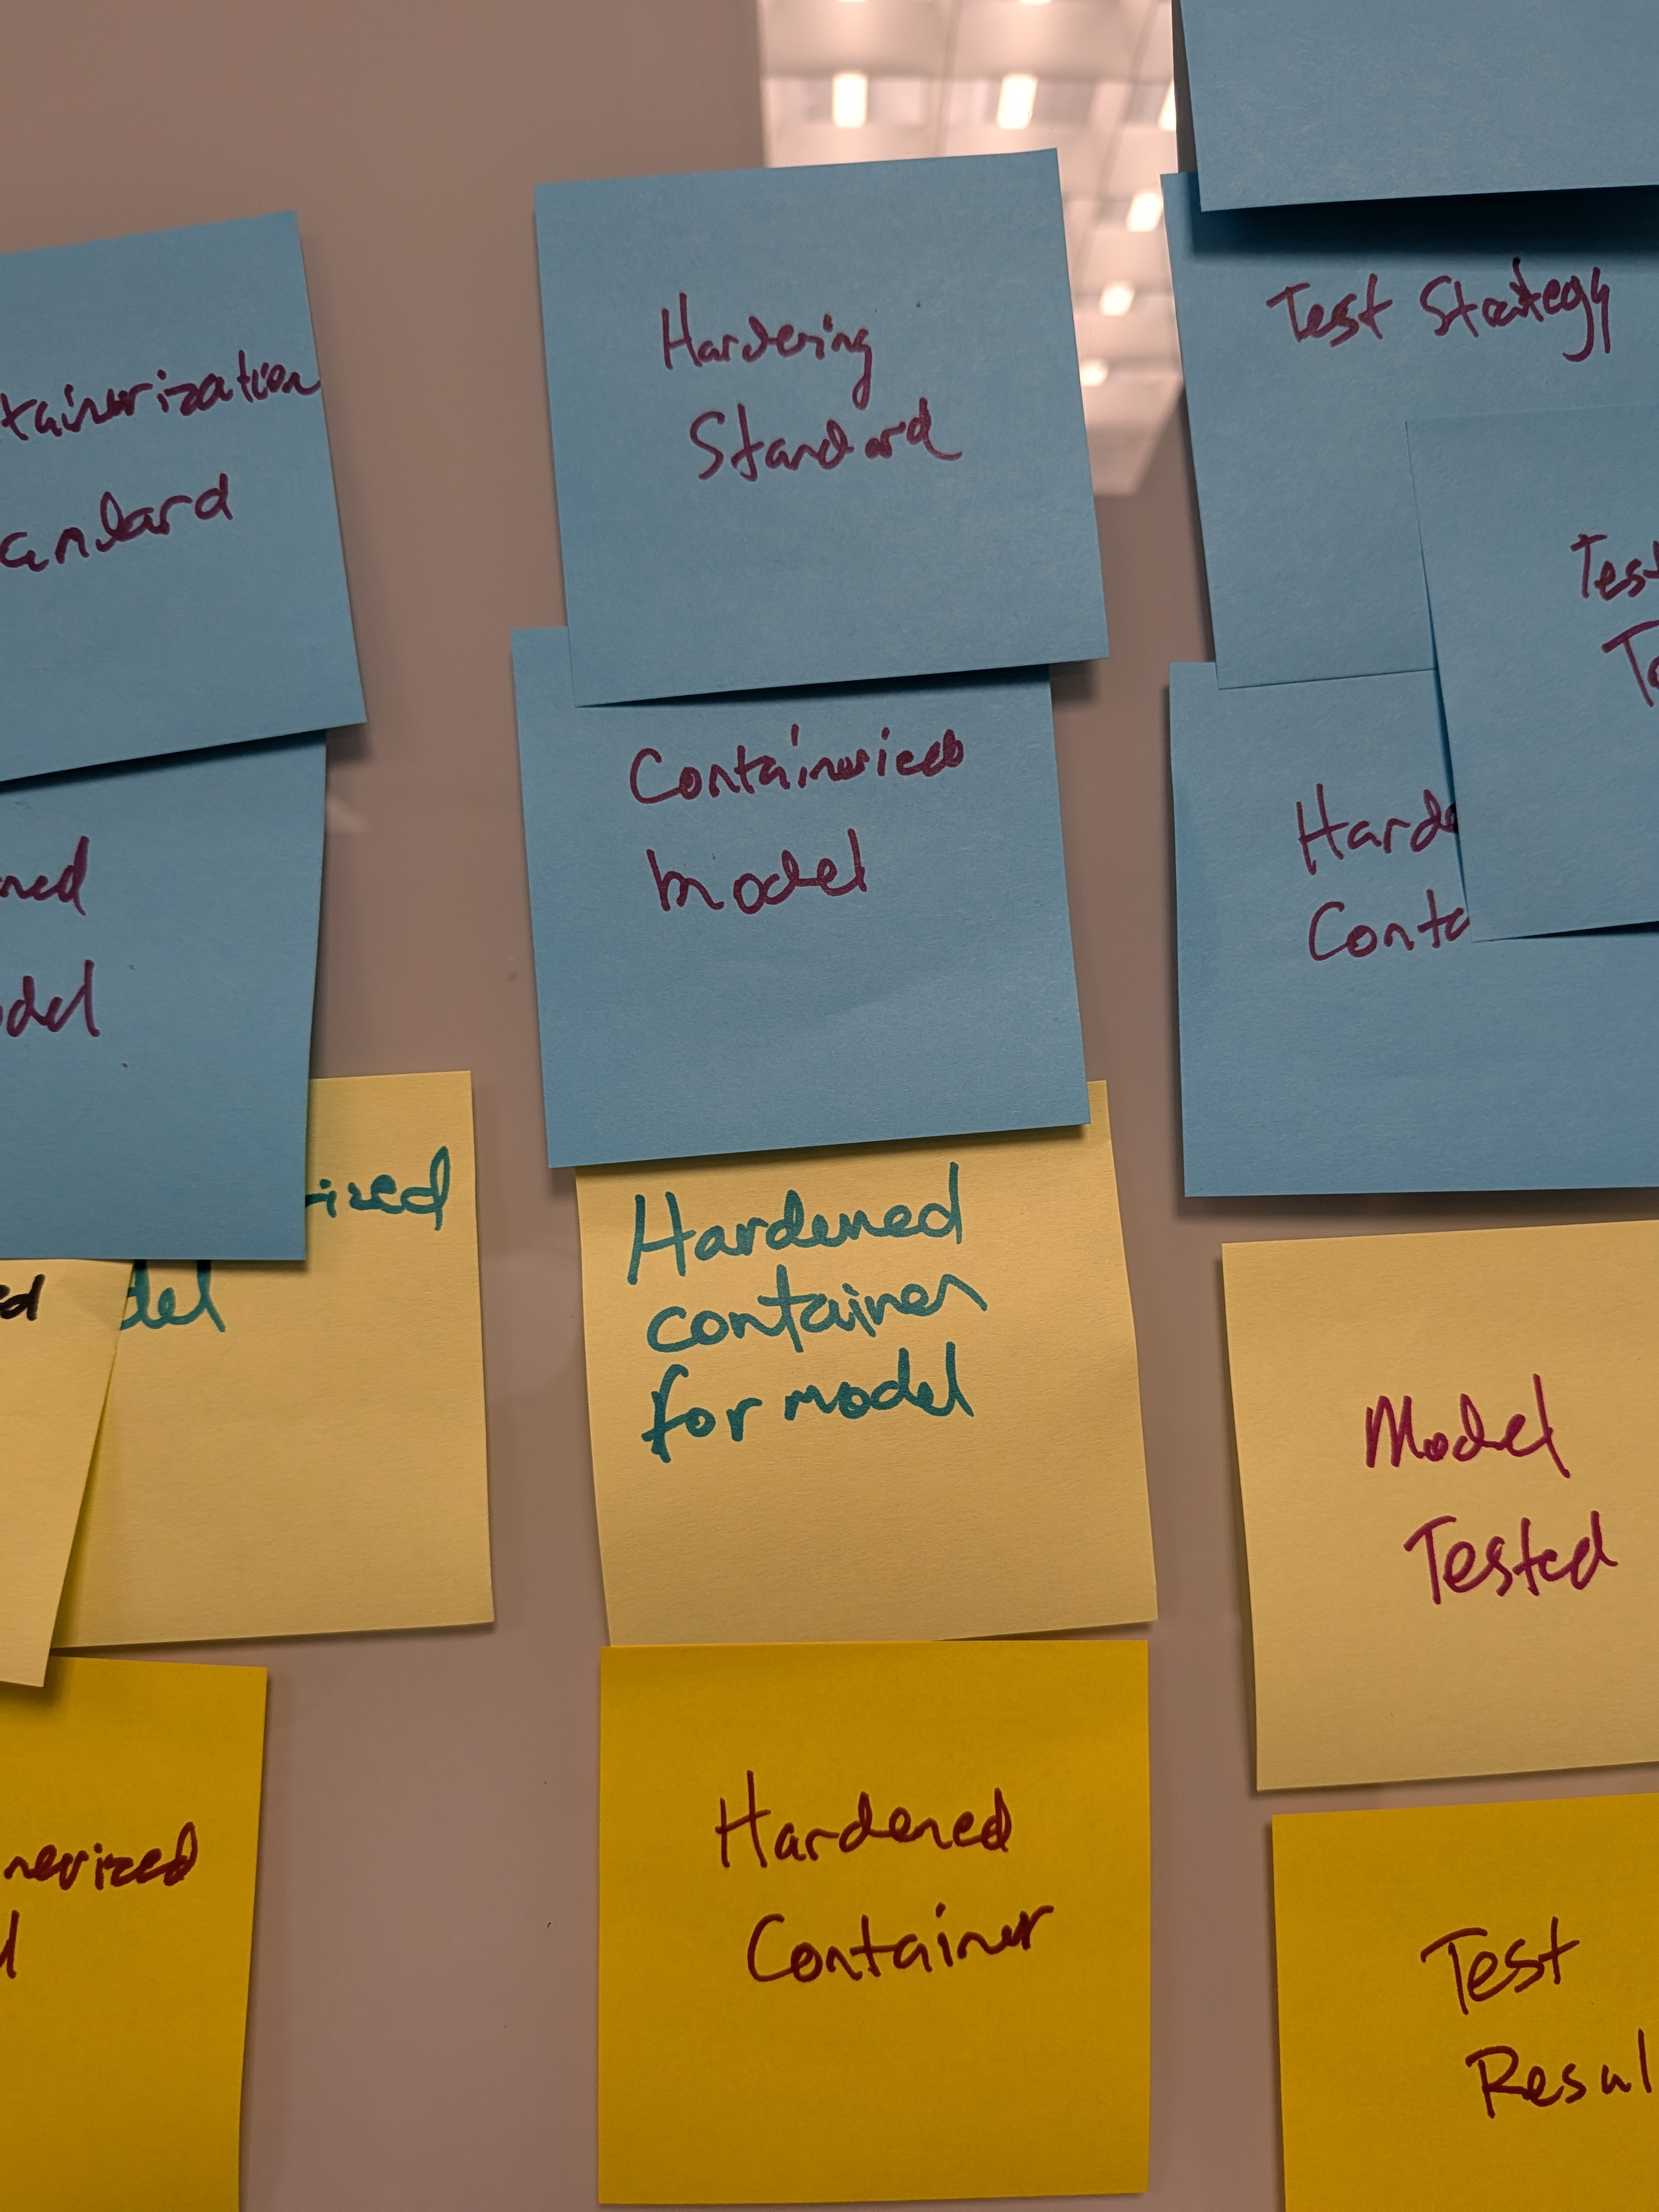 tainerization
andard
ned
odel
ized
del
ed
nerized
Hardening
Standard
Containerized
model
Hardened
container
for model
Hardened
Container
Test Strategy
Test
Harde
Conta
Model
Tested
Test
Resul